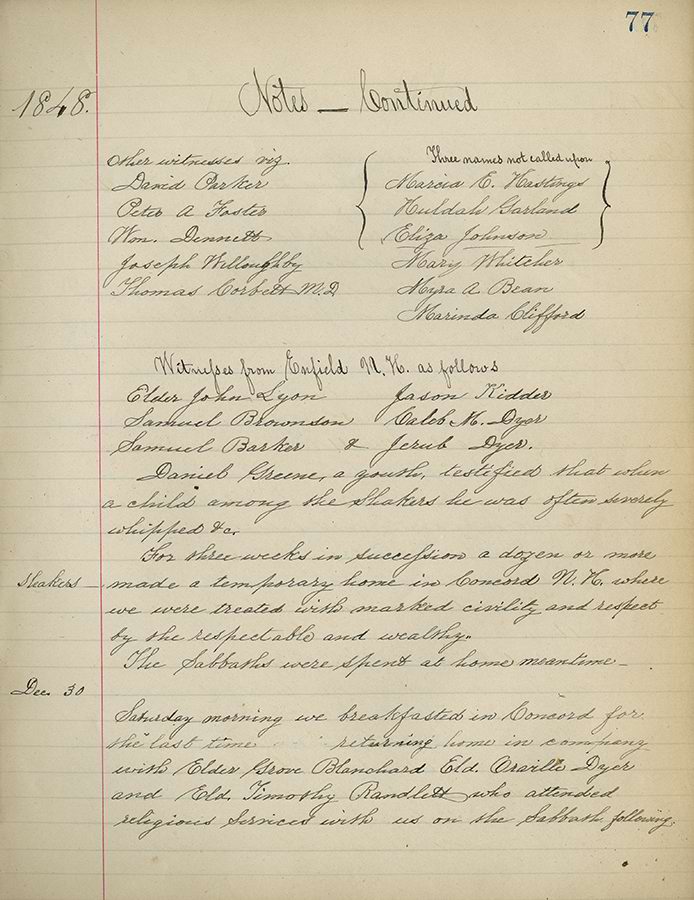 77
1848. Notes — Continued
Other witnesses viz. Three names not called upon
David Parker Marcia E. Hastings
Peter A Foster Huldah Garland
Wm. Dennett Eliza Johnson
Joseph Willoughby Mary Whitcher
Thomas Corbett M.D Myra A Bean
Marinda Clifford
Witnesses from Enfield N.H. as follows
Elder John Lyon Jason Kidder
Samuel Brownson Caleb M. Dyer
Samuel Barker & Jerub Dyer.
Daniel Greene, a youth, testified that when
a child among the Shakers he was often severely
whipped &c.
For three weeks in succession a dozen or more
Shakers — made a temporary home in Concord N.H. where
we were treated with marked civility and respect
by the respectable and wealthy.
The Sabbaths were spent at home meantime —
Dec. 30
Saturday morning we breakfasted in Concord for
the last time returning home in company
with Elder Grove Blanchard Eld. Orville Dyer
and Eld. Timothy Randlett who attended
religious services with us on the Sabbath following.